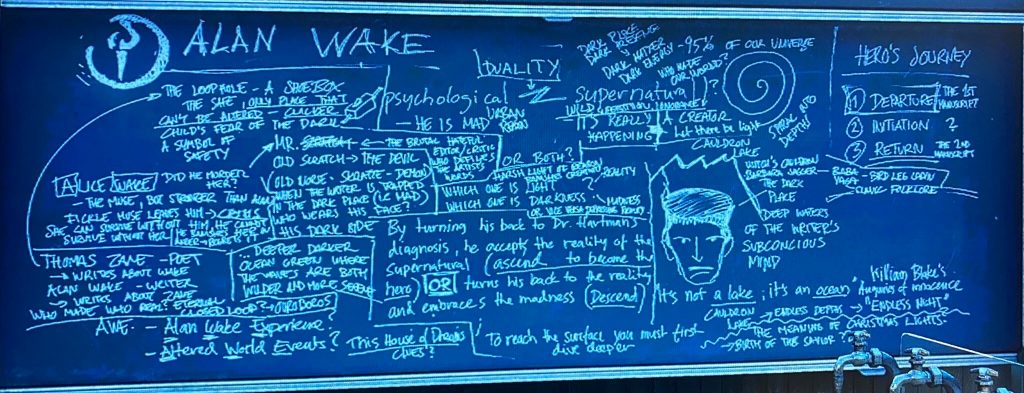 ALAN WAKE
THE LOOPHOLE - A SHOEBOX
THE SAFE, ONLY PLACE THAT
CAN'T BE ALTERED - CLICKER
CHILD'S FEAR OF THE DARK
A SYMBOL OF
SAFETY
ALICE WAKE
DID HE MURDER
HER?
- THE MUSE, BUT STRONGER THAN ALAN
FICKLE MUSE LEAVES HIM → CRISIS
SHE CAN SURVIVE WITHOUT HIM, HE CANNOT
SURVIVE WITHOUT HER
THOMAS ZANE - POET
→ WRITES ABOUT WAKE
ALAN WAKE - WRITER
→ WRITES ABOUT ZANE
WHO MADE WHO REAL? ETERNAL
CLOSED LOOP? → OUROBOROS
AWE - Alan Wake Experience?
- Altered World Events?
MR. SCRATCH
OLD SCRATCH → THE DEVIL
OLD NORSE - SKRATTE - DEMON
WHEN THE WRITER IS TRAPPED
IN THE DARK PLACE (IE MAD)
WHO WEARS HIS FACE?
HIS DARK SIDE
THE BRUTAL HATEFUL
EDITOR/CRITIC
WHO DEFILES
THE ARTIST'S
WORDS
DEEPER DARKER
OCEAN GREEN WHERE
THE WAVES ARE BOTH
WILDER AND MORE SERENE
This House of Dreams
CLUES?
DUALITY
psychological
- HE IS MAD
supernatural?
IT'S REALLY
HAPPENING
OR BOTH?
HARSH LIGHT OF REASON
WHICH ONE IS LIGHT? - REALITY
WHICH ONE IS DARKNESS - MADNESS
By turning his back to Dr. Hartman's
diagnosis, he accepts the reality of the
Supernatural (ascend to become the
hero) OR turns his back to the reality
and embraces the madness (Descend)
To reach the surface you must first
dive deeper
DARK PLACE
DARK MATTER
DARK ENERGY
- 95% OF OUR UNIVERSE
WHO MADE
OUR WORLD?
A CREATOR
Let there be light
CAULDRON
LAKE
SPIRAL INTO
DEPTHS
WITCH'S CAULDRON
BARBARA JAGGER
THE DARK
PLACE
BABA
YAGA
- BIRD LEG CABIN
- SLAVIC FOLKLORE
DEEP WATERS
OF THE WRITER'S
SUBCONCIOUS
MIND
It's not a lake, it's an ocean
CAULDRON
LAKE → ENDLESS DEPTHS →
William Blake's
"Auguries of innocence"
"ENDLESS NIGHT"
THE MEANING OF CHRISTMAS LIGHTS
→ BIRTH OF THE SAVIOR?
HERO'S JOURNEY
1 DEPARTURE THE 1ST
MANUSCRIPT
2 INITIATION ?
3 RETURN THE 2ND
MANUSCRIPT